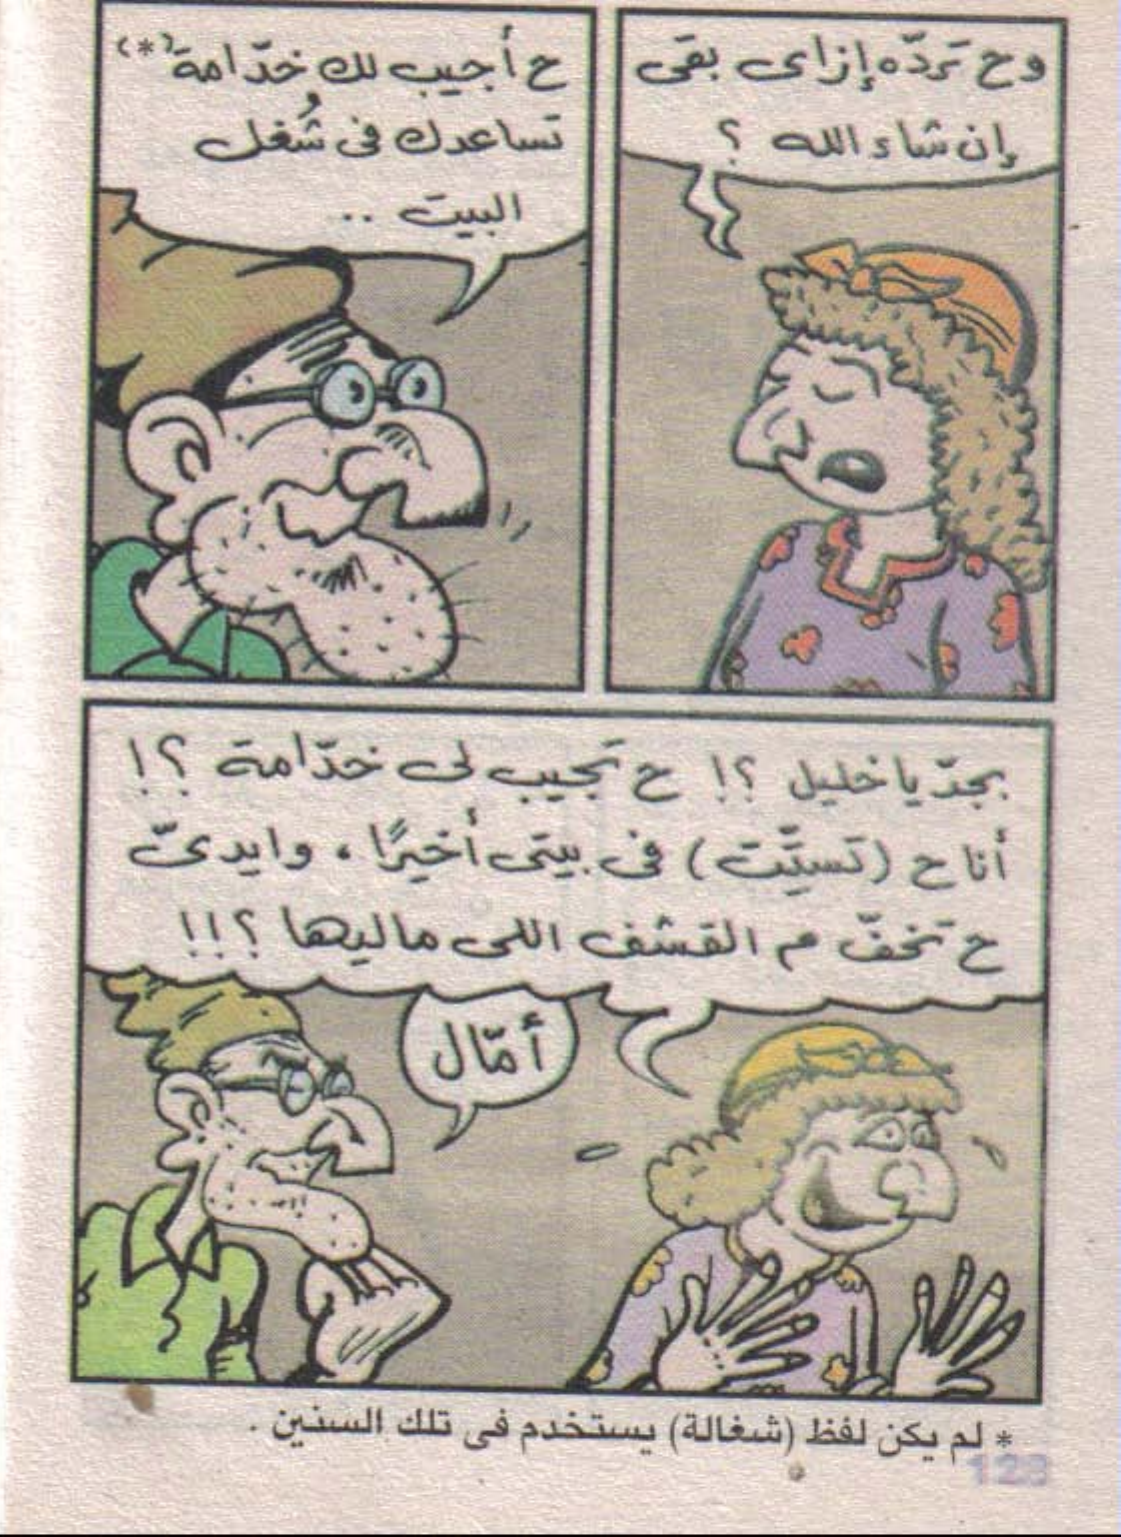 وح تردّه إزاى بقى
إن شاء الله ؟
ح أجيب لك خدّامة (*)
تساعدك فى شُغل
البيت ..
بجدّ يا خليل ؟! ح تجيب لى خدّامة ؟!
أنا ح (تستّت) فى بيتى أخيرًا، وايدىّ
ح تخفّ م القشف اللى ماليها ؟!!
أمّال
* لم يكن لفظ (شغالة) يستخدم فى تلك السنين .
128